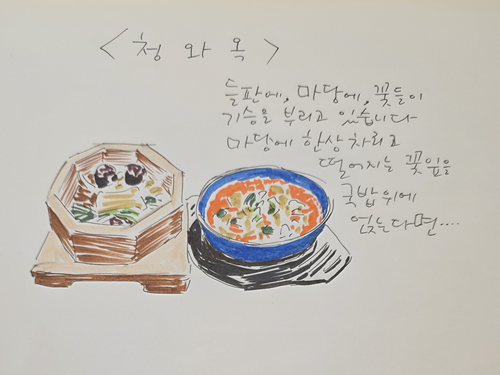 < 청 와 옥 >
들판에, 마당에, 꽃들이
기승을 부리고 있습니다
마당에 한상차리고
떨어지는 꽃잎을
국밥위에
얹는다면....